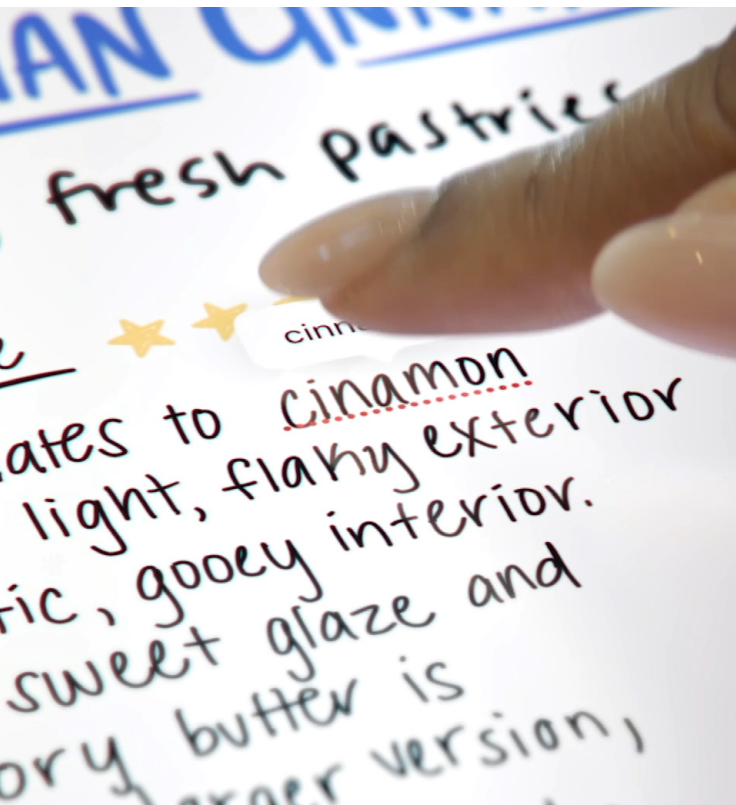 fresh pastries
cinn
ates to cinamon
light, flaky exterior
tic, gooey interior.
sweet glaze and
ory butter is
version,